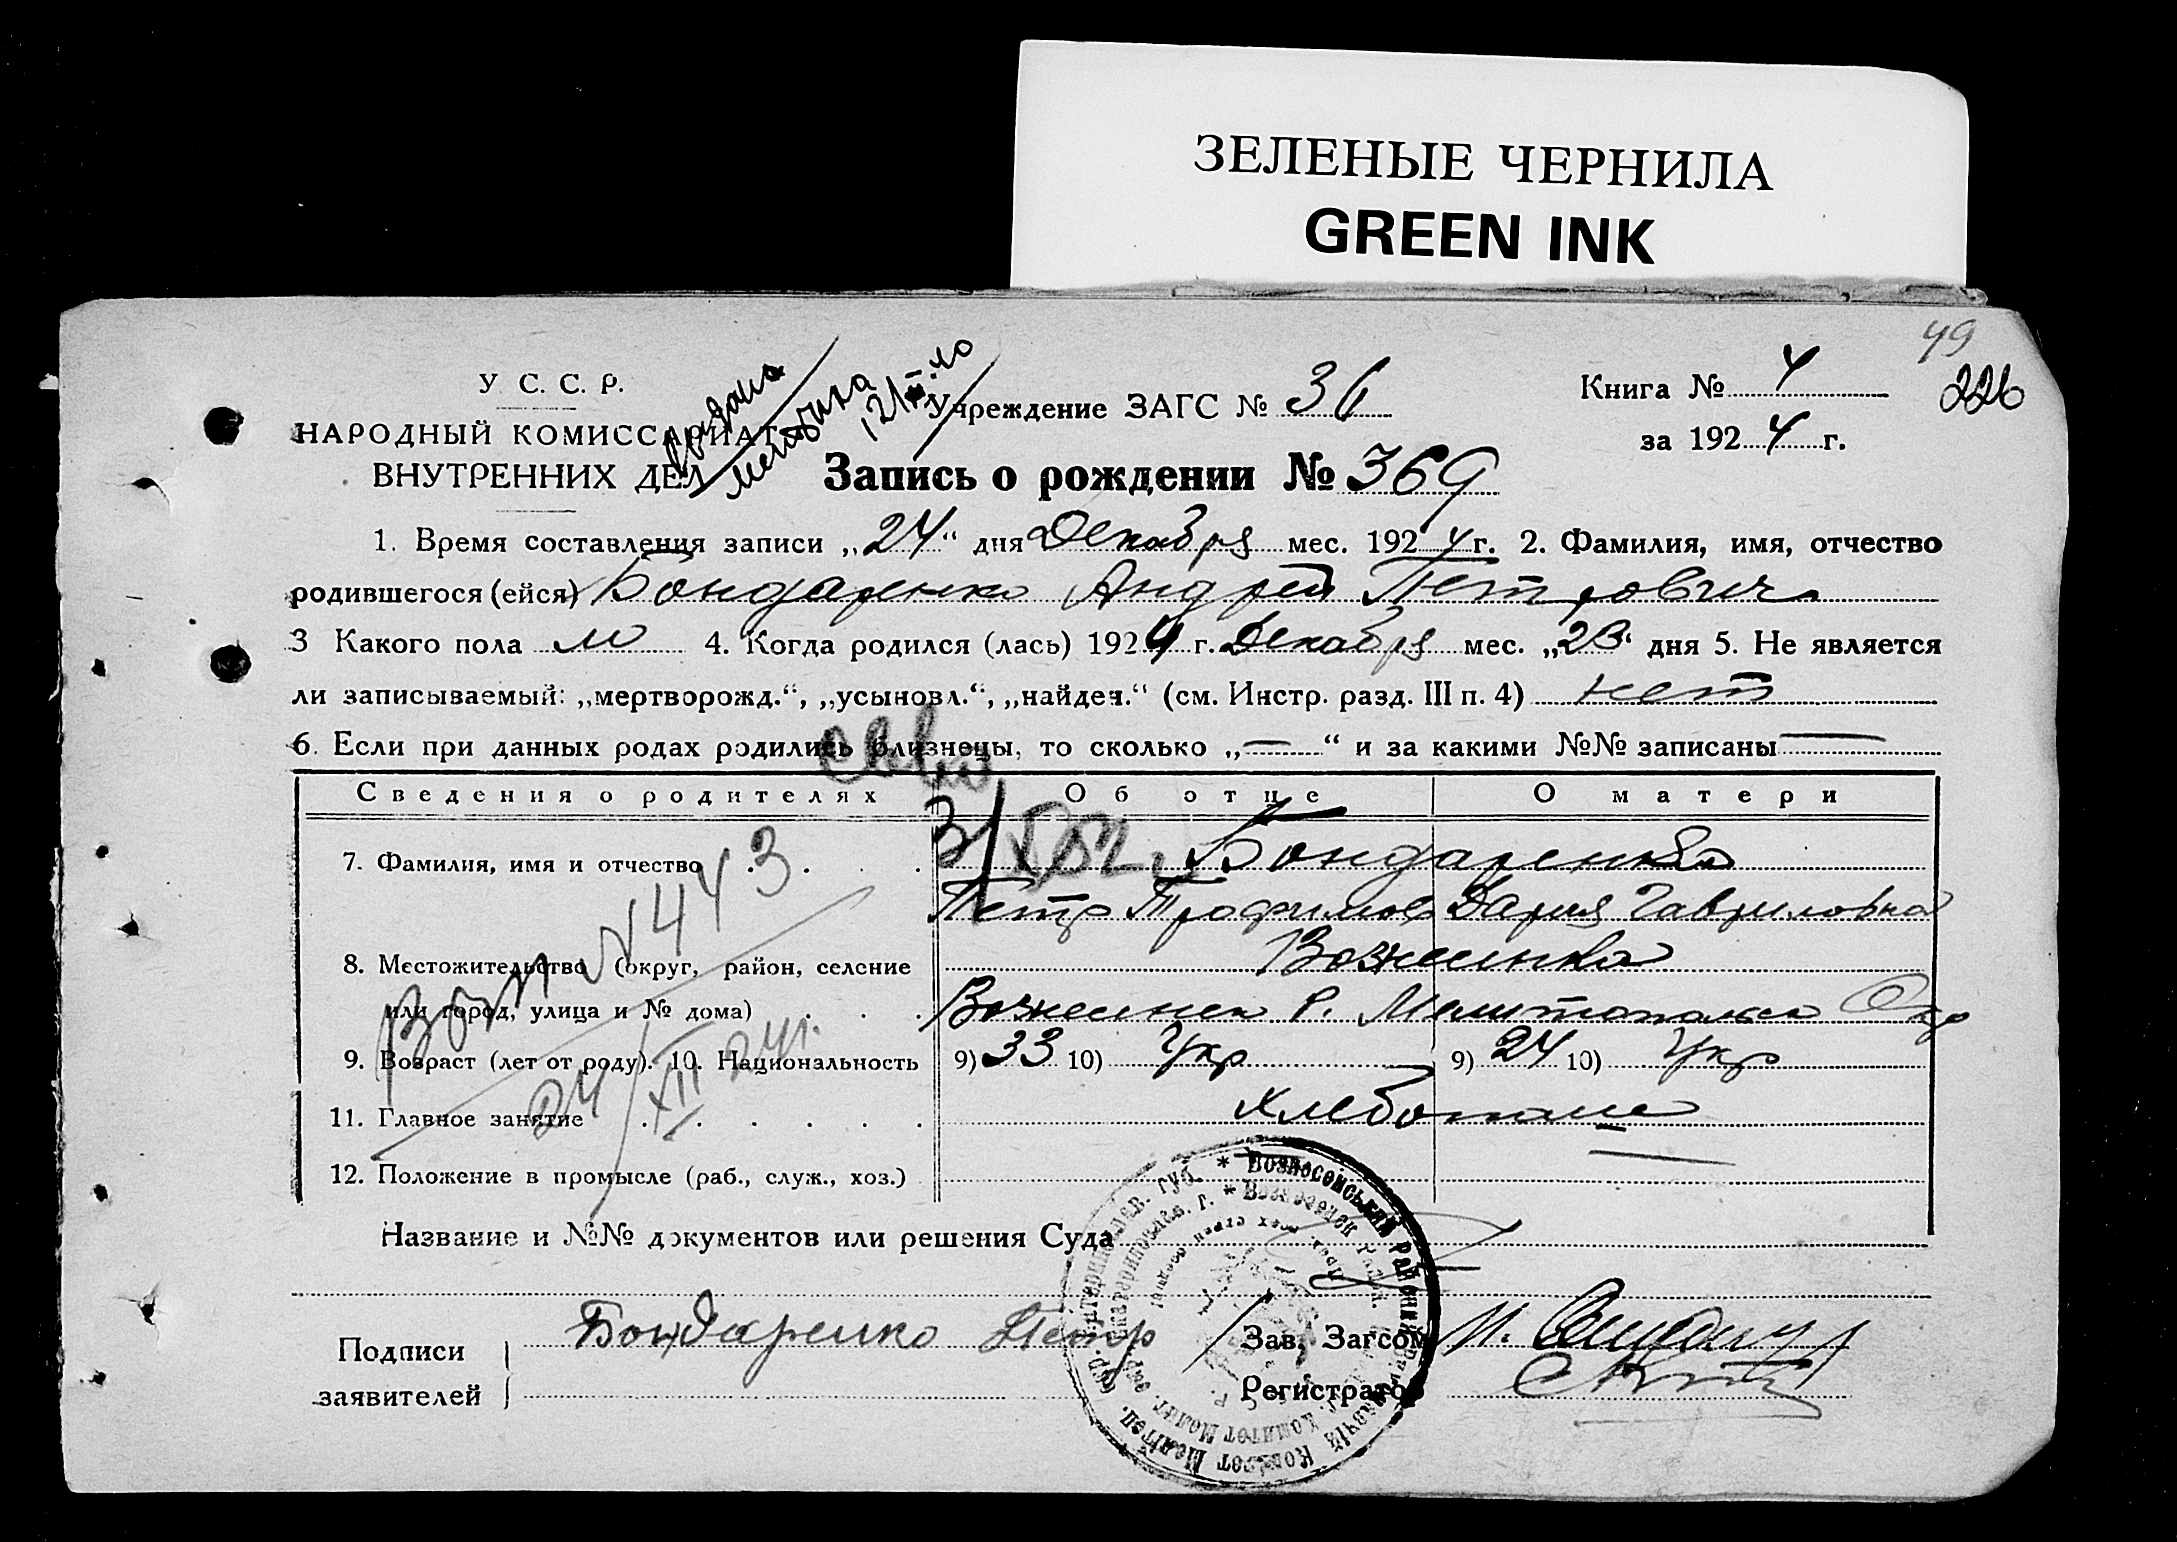 ЗЕЛЕНЫЕ ЧЕРНИЛА
GREEN INK
49
226
У С. С. Р.
НАРОДНЫЙ КОМИССАРИАТ
ВНУТРЕННИХ ДЕЛ
Учреждение ЗАГС № 36
Книга № 4
за 1924 г.
Запись о рождении № 369
1. Время составления записи „24“ дня Декабря мес. 1924 г. 2. Фамилия, имя, отчество
родившегося (ейся) Бондаренко Андрей Петрович
3 Какого пола м 4. Когда родился (лась) 1924 г. Декабря мес. „23“ дня 5. Не является
ли записываемый: „мертворожд.“, „усыновл.“, „найден.“ (см. Инстр. разд. III п. 4) нет
6. Если при данных родах родились близнецы, то сколько „—“ и за какими №№ записаны —
Сведения о родителях Об отце О матери
7. Фамилия, имя и отчество Бондаренко
Петр Трофимов Дария Гавриловна
8. Местожительство (округ, район, селение
или город, улица и № дома)
9. Возраст (лет от роду). 10. Национальность 9) 33 10) Укр 9) 24 10) Укр
№ 443
24/XII 24 г.
11. Главное занятие
12. Положение в промысле (раб., служ., хоз.)
Название и №№ документов или решения Суда
Подписи
заявителей
Бондаренко Петр
Зав. Загсом
Регистратор